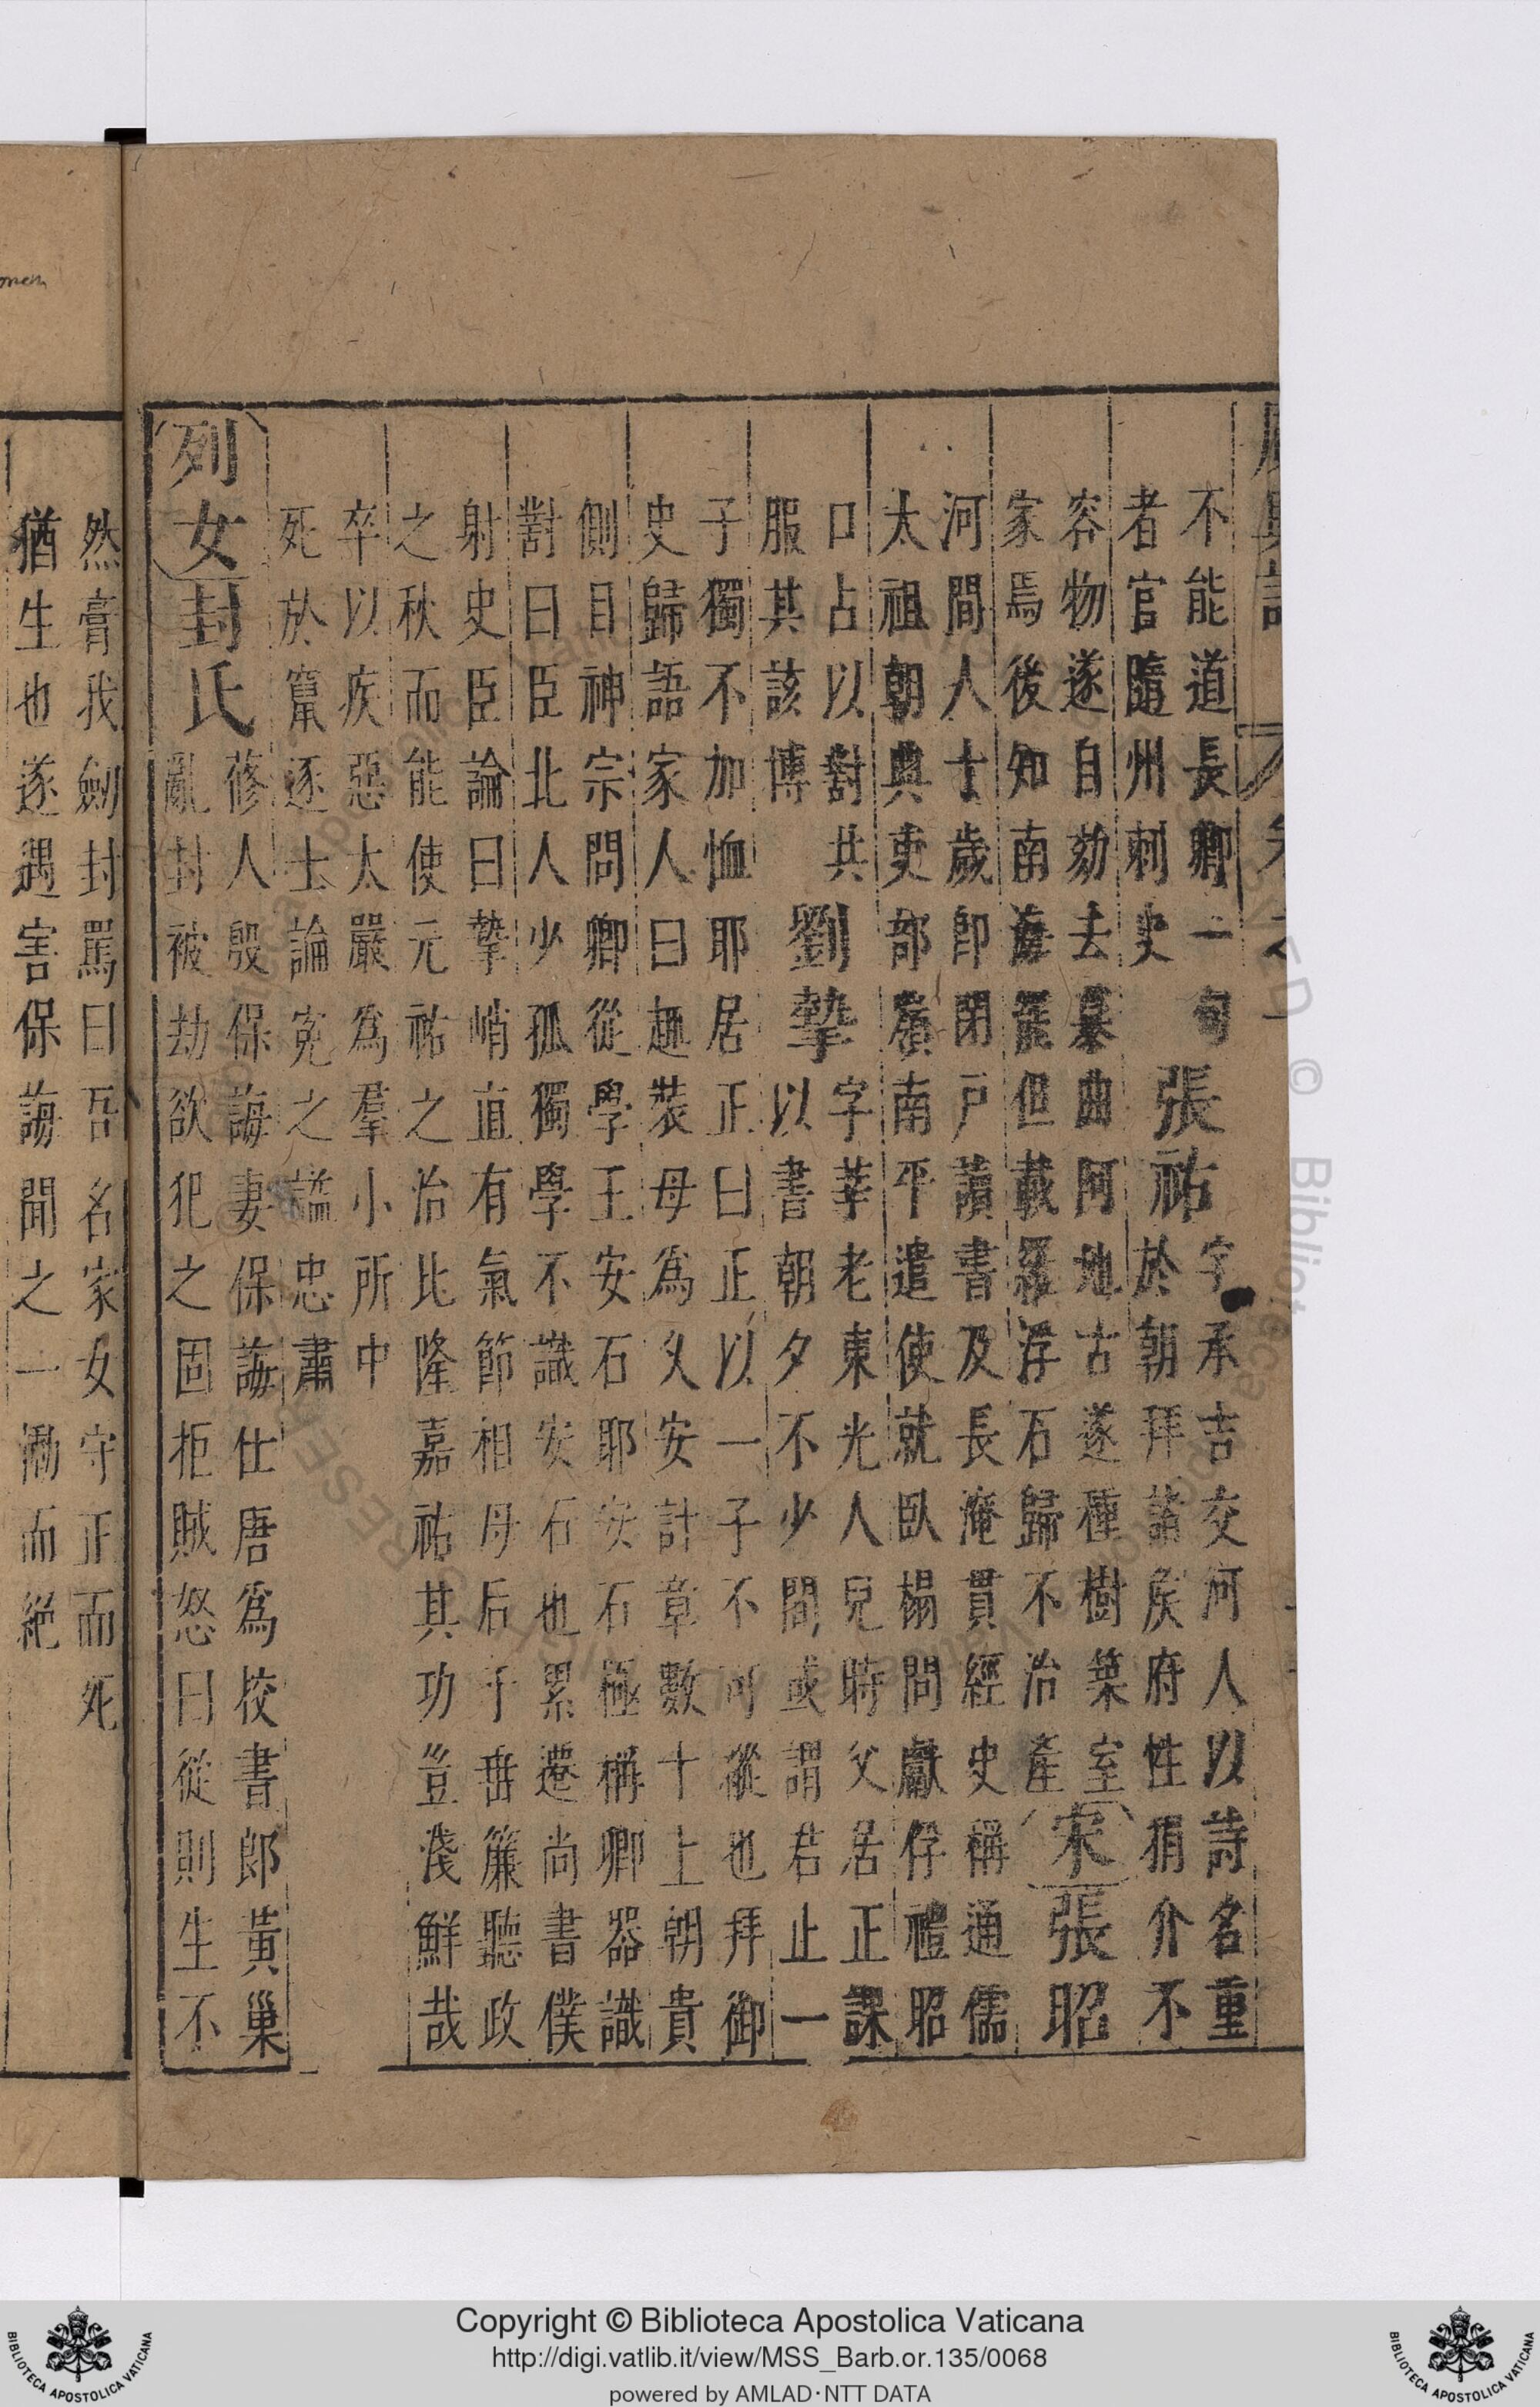 不能道長卿一句
者官隨州刺史
張祐
字承吉交河人以詩名重
於朝拜諸侯府性狷介不
容物遂自劾去慕曲阿地古遂種樹築室
家焉後知南海罷但載羅浮石歸不治產
宋
張昭
河間人十歲即閉戶讀書及長淹貫經史稱通儒
太祖朝典吏部嬪南平遣使就臥榻問獻俘禮昭
口占以對共
服其該博
劉摯
字莘老東光人兒時父居正課
以書朝夕不少間或謂若止一
子獨不加恤耶居正曰正以一子不可縱也拜御
史歸語家人曰趣裝母為久安計章數十上朝貴
側目神宗問卿從學王安石耶安石極稱卿器識
對曰臣北人少孤獨學不識安石也累遷尚書僕
射史臣論曰摯峭直有氣節相母后于垂簾聽政
之秋而能使元祐之治比隆嘉祐其功豈淺鮮哉
卒以疾惡太嚴為羣小所中
死於竄逐士論冤之謚忠肅
列女
封氏
蓚人殷保誨妻保誨仕唐為校書郎黃巢
亂封被劫欲犯之固拒賊怒曰從則生不
然膏我劍封罵曰吾名家女守正而死
猶生也遂遇害保誨聞之一慟而絕
Copyright © Biblioteca Apostolica Vaticana
http://digi.vatlib.it/view/MSS_Barb.or.135/0068
powered by AMLAD·NTT DATA
BIBLIOTECA APOSTOLICA VATICANA
BIBLIOTECA APOSTOLICA VATICANA